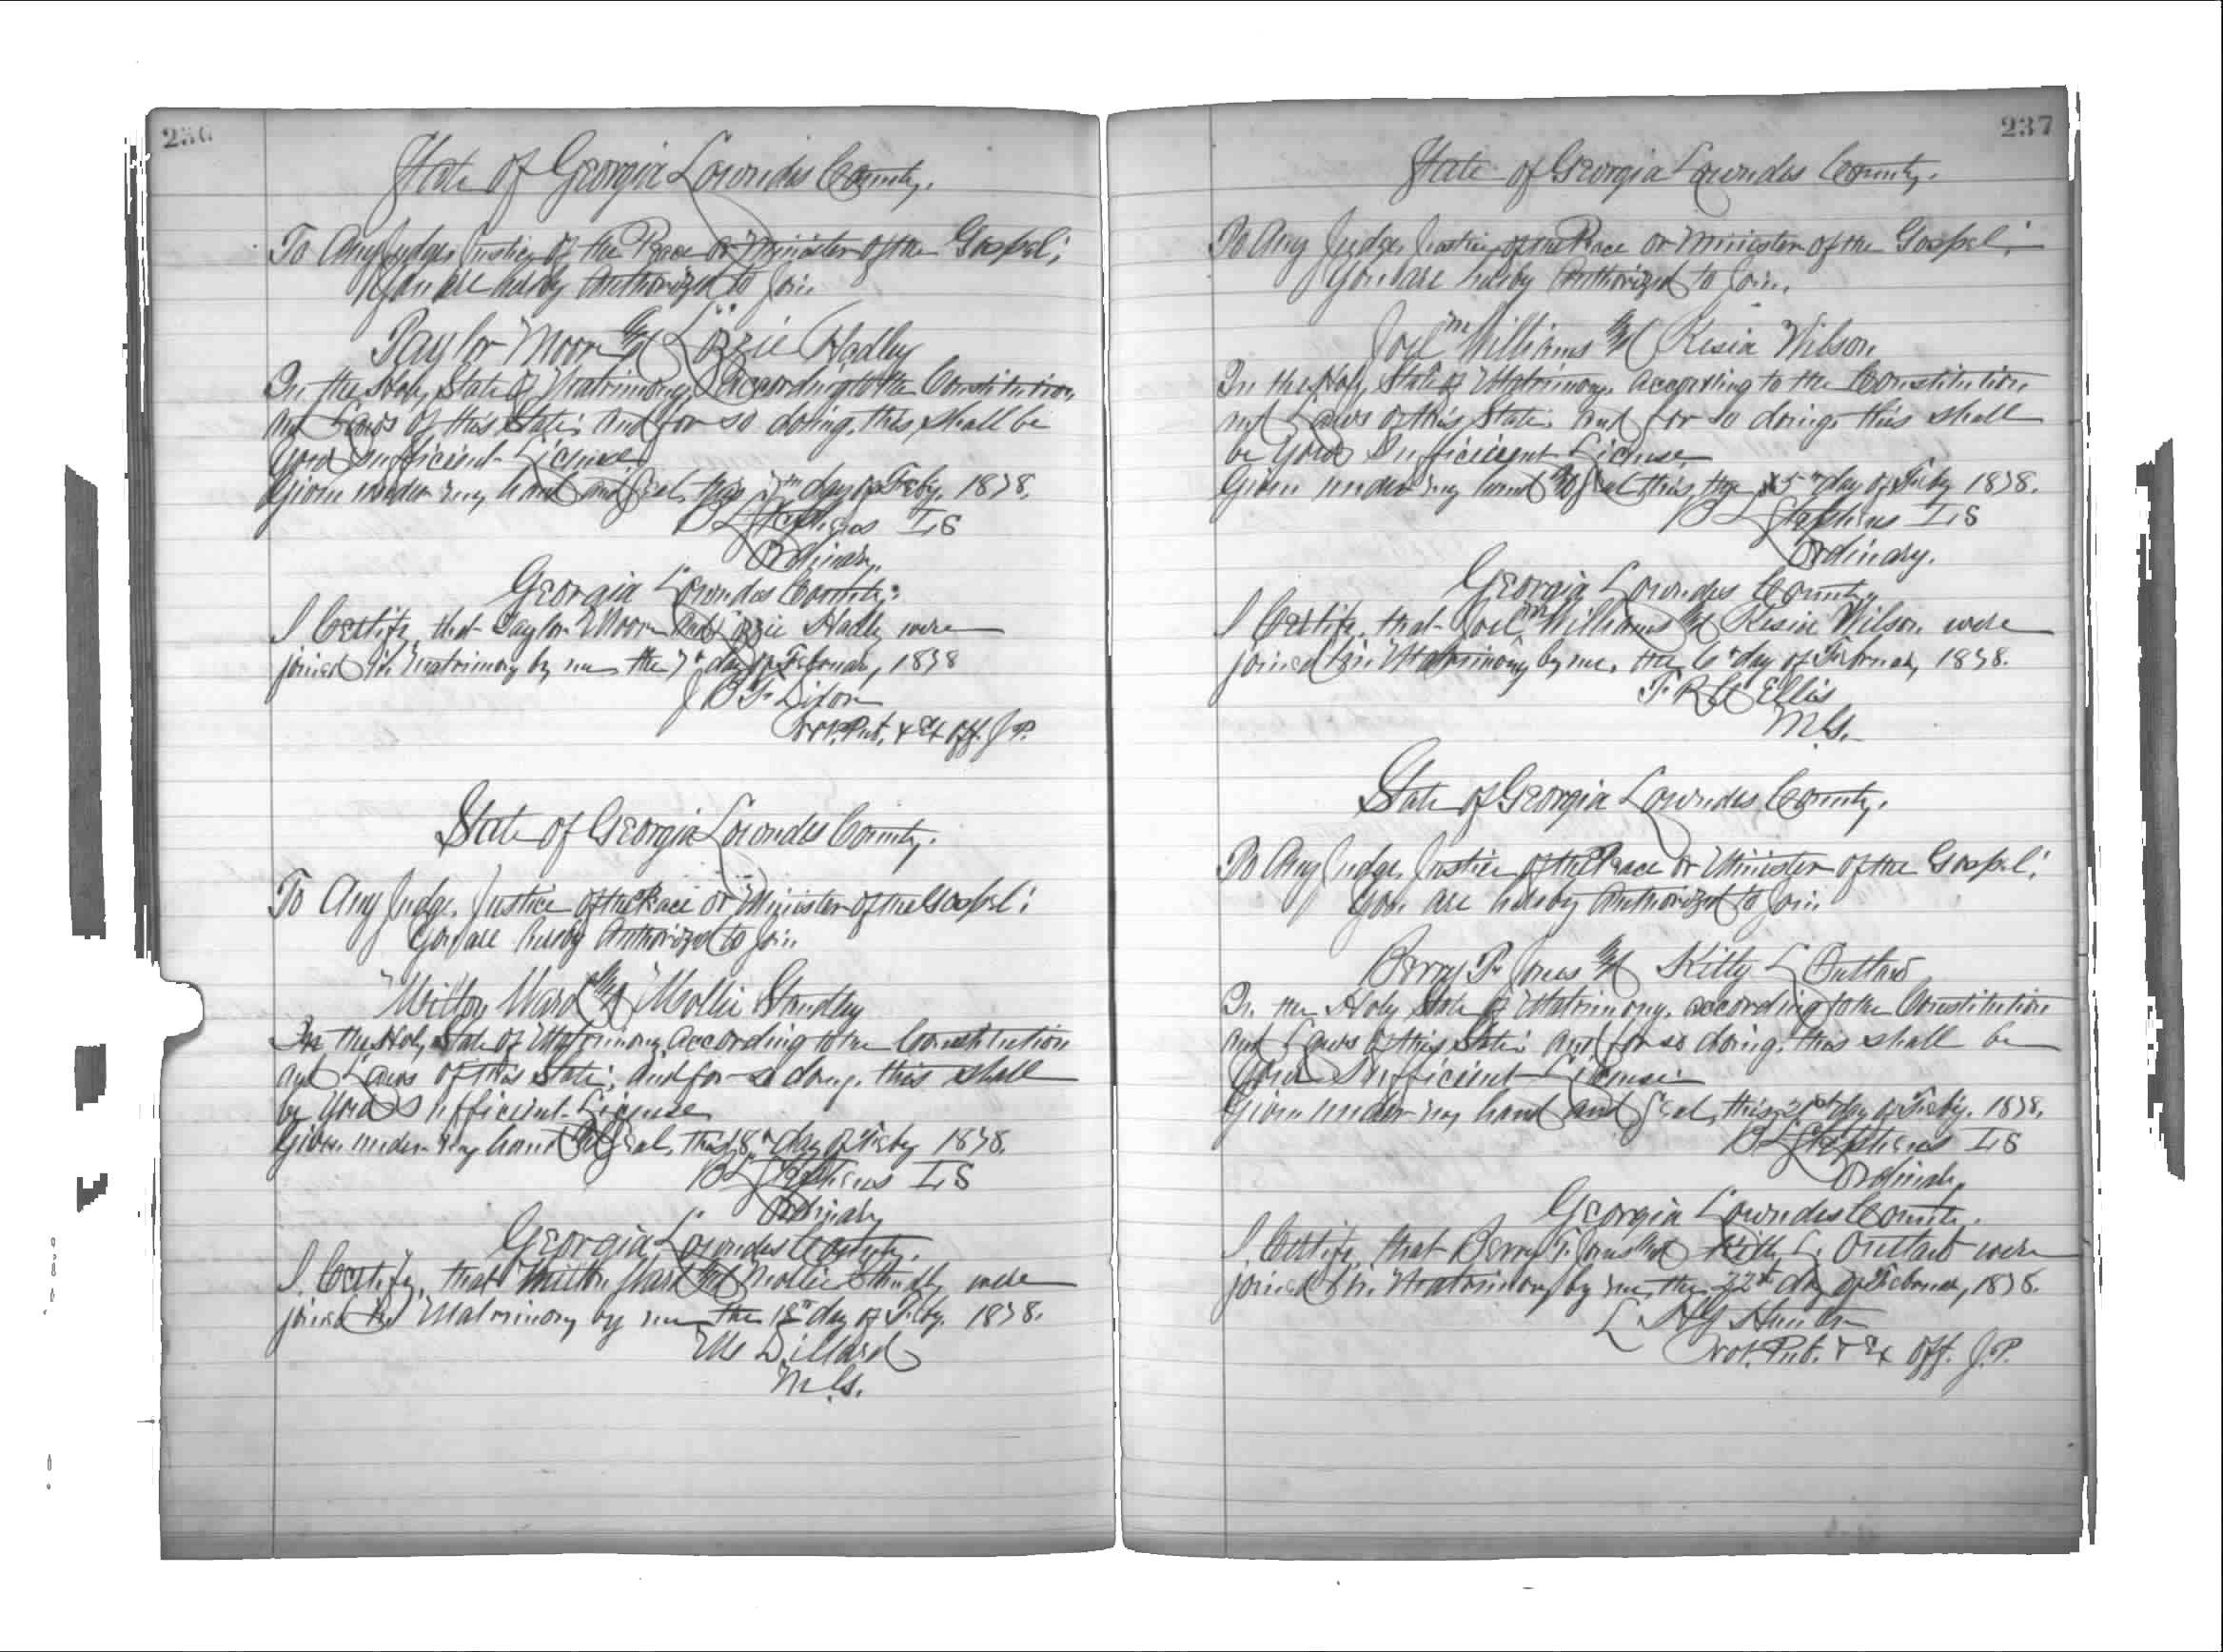 236
State of Georgia Lowndes County.
To Any Judge, Justice of the Peace or Minister of the Gospel:
You are hereby Authorized to Join
Taylor Moore and Lizzie Hadley
In the Holy State of Matrimony, According to the Constitution
and Laws of this State; and for so doing, this shall be
your sufficient License
Given under my hand and Seal, this day of Feby. 1878.
B L Stephens L,S
Ordinary.
Georgia Lowndes County:
I Certify, that Taylor Moore and Lizzie Hadley were
joined in matrimony by me the 7th day of February, 1878
J B F Dixon
Not. Pub. & Ex Off. J P.
State of Georgia Lowndes County.
To Any Judge, Justice of the Peace or Minister of the Gospel:
You are hereby Authorized to Join
Milton Ward and Mollie Standley
In the Holy State of Matrimony, According to the Constitution
and Laws of this State; and for so doing, this shall
be your Sufficient License
Given under my hand and Seal, this 18th day of Feby 1878.
B L Stephens L,S
Ordinary
Georgia Lowndes County.
I Certify, that Milton Ward and Mollie Standley were
joined in Matrimony by me the 18th day of Feby. 1878.
Dillard
M.G.
237
State of Georgia Lowndes County.
To Any Judge, Justice of the Peace or Minister of the Gospel:
You are hereby Authorized to Join.
Joel M Williams and Kesia Wilson
In the Holy State of Matrimony, According to the Constitution
and Laws of this State; and for so doing, this shall
be your Sufficient License
Given under my hand and Seal this, the 5th day of Feby 1878.
B L Stephens L,S
Ordinary.
Georgia Lowndes County.
I Certify, that Joel M Williams and Kesia Wilson were
joined in Matrimony by me, the 6th day of February, 1878.
Ellis
M.G.
State of Georgia Lowndes County.
To Any Judge, Justice of the Peace or Minister of the Gospel:
You are hereby Authorized to Join
Berry T. Jones and Kitty L Outlaw
In the Holy State of Matrimony, according to the Constitution
and Laws of this State; and for so doing, this shall be
your Sufficient License
Given under my hand and Seal, this 21st day of Feby. 1878.
B L Stephens L,S
Ordinary
Georgia Lowndes County.
I Certify, that Berry T. Jones and Kitty L. Outlaw were
joined in Matrimony by me, the 22nd day of February, 1878.
L. Hunter
Not. Pub. & Ex Off. J.P.